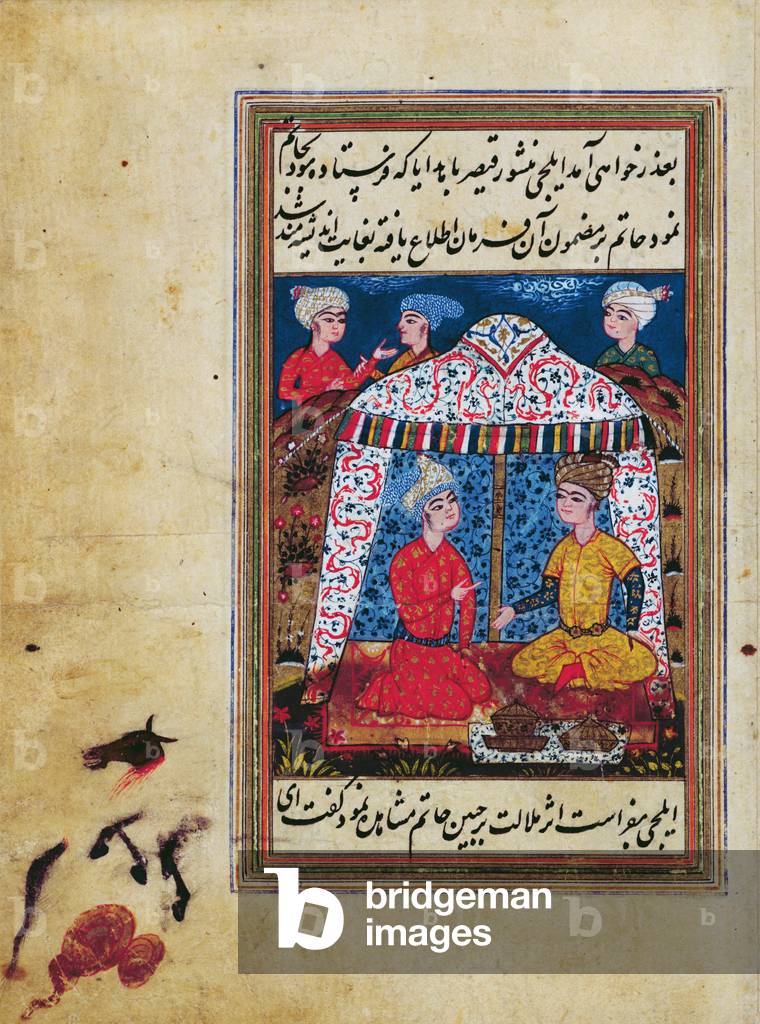 بعذرخواهی آمد ایلچی منشور قیصر با هدایا که فرستاده بود بحاتم
نمود حاتم بر مضمون آن فرمان اطلاع یافته بغایت اندیشه مند شد
ایلچی بفراست اثر ملالت بر جبین حاتم مشاهده نمود گفت ای
b bridgeman
images